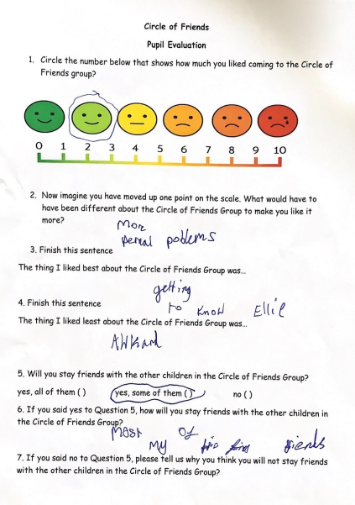 Circle of Friends
Pupil Evaluation
1. Circle the number below that shows how much you liked coming to the Circle of
Friends group?
0 1 2 3 4 5 6 7 8 9 10
2. Now imagine you have moved up one point on the scale. What would have to
have been different about the Circle of Friends Group to make you like it
more?
More
poblems
3. Finish this sentence
The thing I liked best about the Circle of Friends Group was...
getting
to know Ellie
4. Finish this sentence
The thing I liked least about the Circle of Friends Group was...
AWKard
5. Will you stay friends with the other children in the Circle of Friends?
yes, all of them ( ) yes, some of them ( ) no ( )
6. If you said yes to Question 5, how will you stay friends with the other children in
the Circle of Friends Group?
Most of
my fiends
7. If you said no to Question 5, please tell us why you think you will not stay friends
with the other children in the Circle of Friends Group?